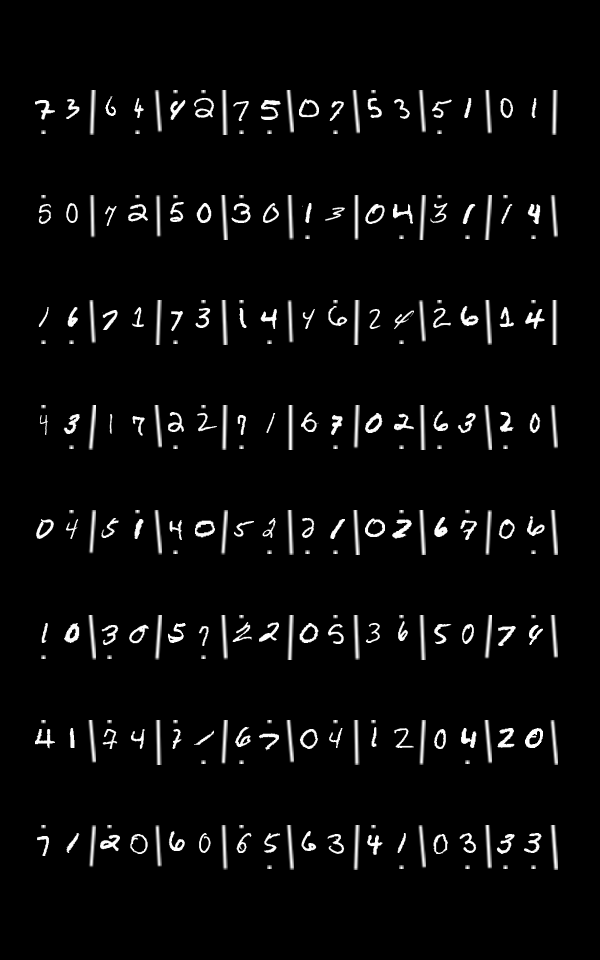 7 3 | 6 4 | 4 2 | 7 5 | 0 7 | 5 3 | 5 1 | 0 1 |
5 0 | 7 2 | 5 0 | 3 0 | 1 3 | 0 4 | 3 1 | 1 4 |
1 6 | 7 1 | 7 3 | 1 4 | 4 6 | 2 4 | 2 6 | 1 4 |
4 3 | 1 7 | 2 2 | 7 1 | 6 7 | 0 2 | 6 3 | 2 0 |
0 4 | 5 1 | 4 0 | 5 2 | 2 1 | 0 2 | 6 7 | 0 6 |
1 0 | 3 0 | 5 7 | 2 2 | 0 5 | 3 6 | 5 0 | 7 4 |
4 1 | 7 4 | 7 1 | 6 7 | 0 4 | 1 2 | 0 4 | 2 0 |
7 1 | 2 0 | 6 0 | 6 5 | 6 3 | 4 1 | 0 3 | 3 3 |